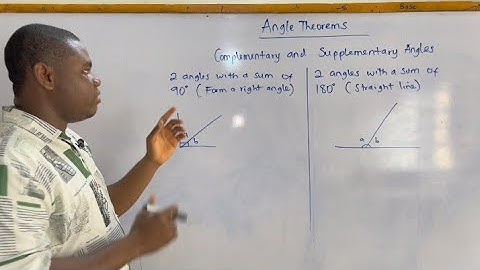 Base
Angle Theorems
Complementary and Supplementary Angles
2 angles with a sum of
90° (Form a right angle)
b
2 angles with a sum of
180° (Straight line)
a b